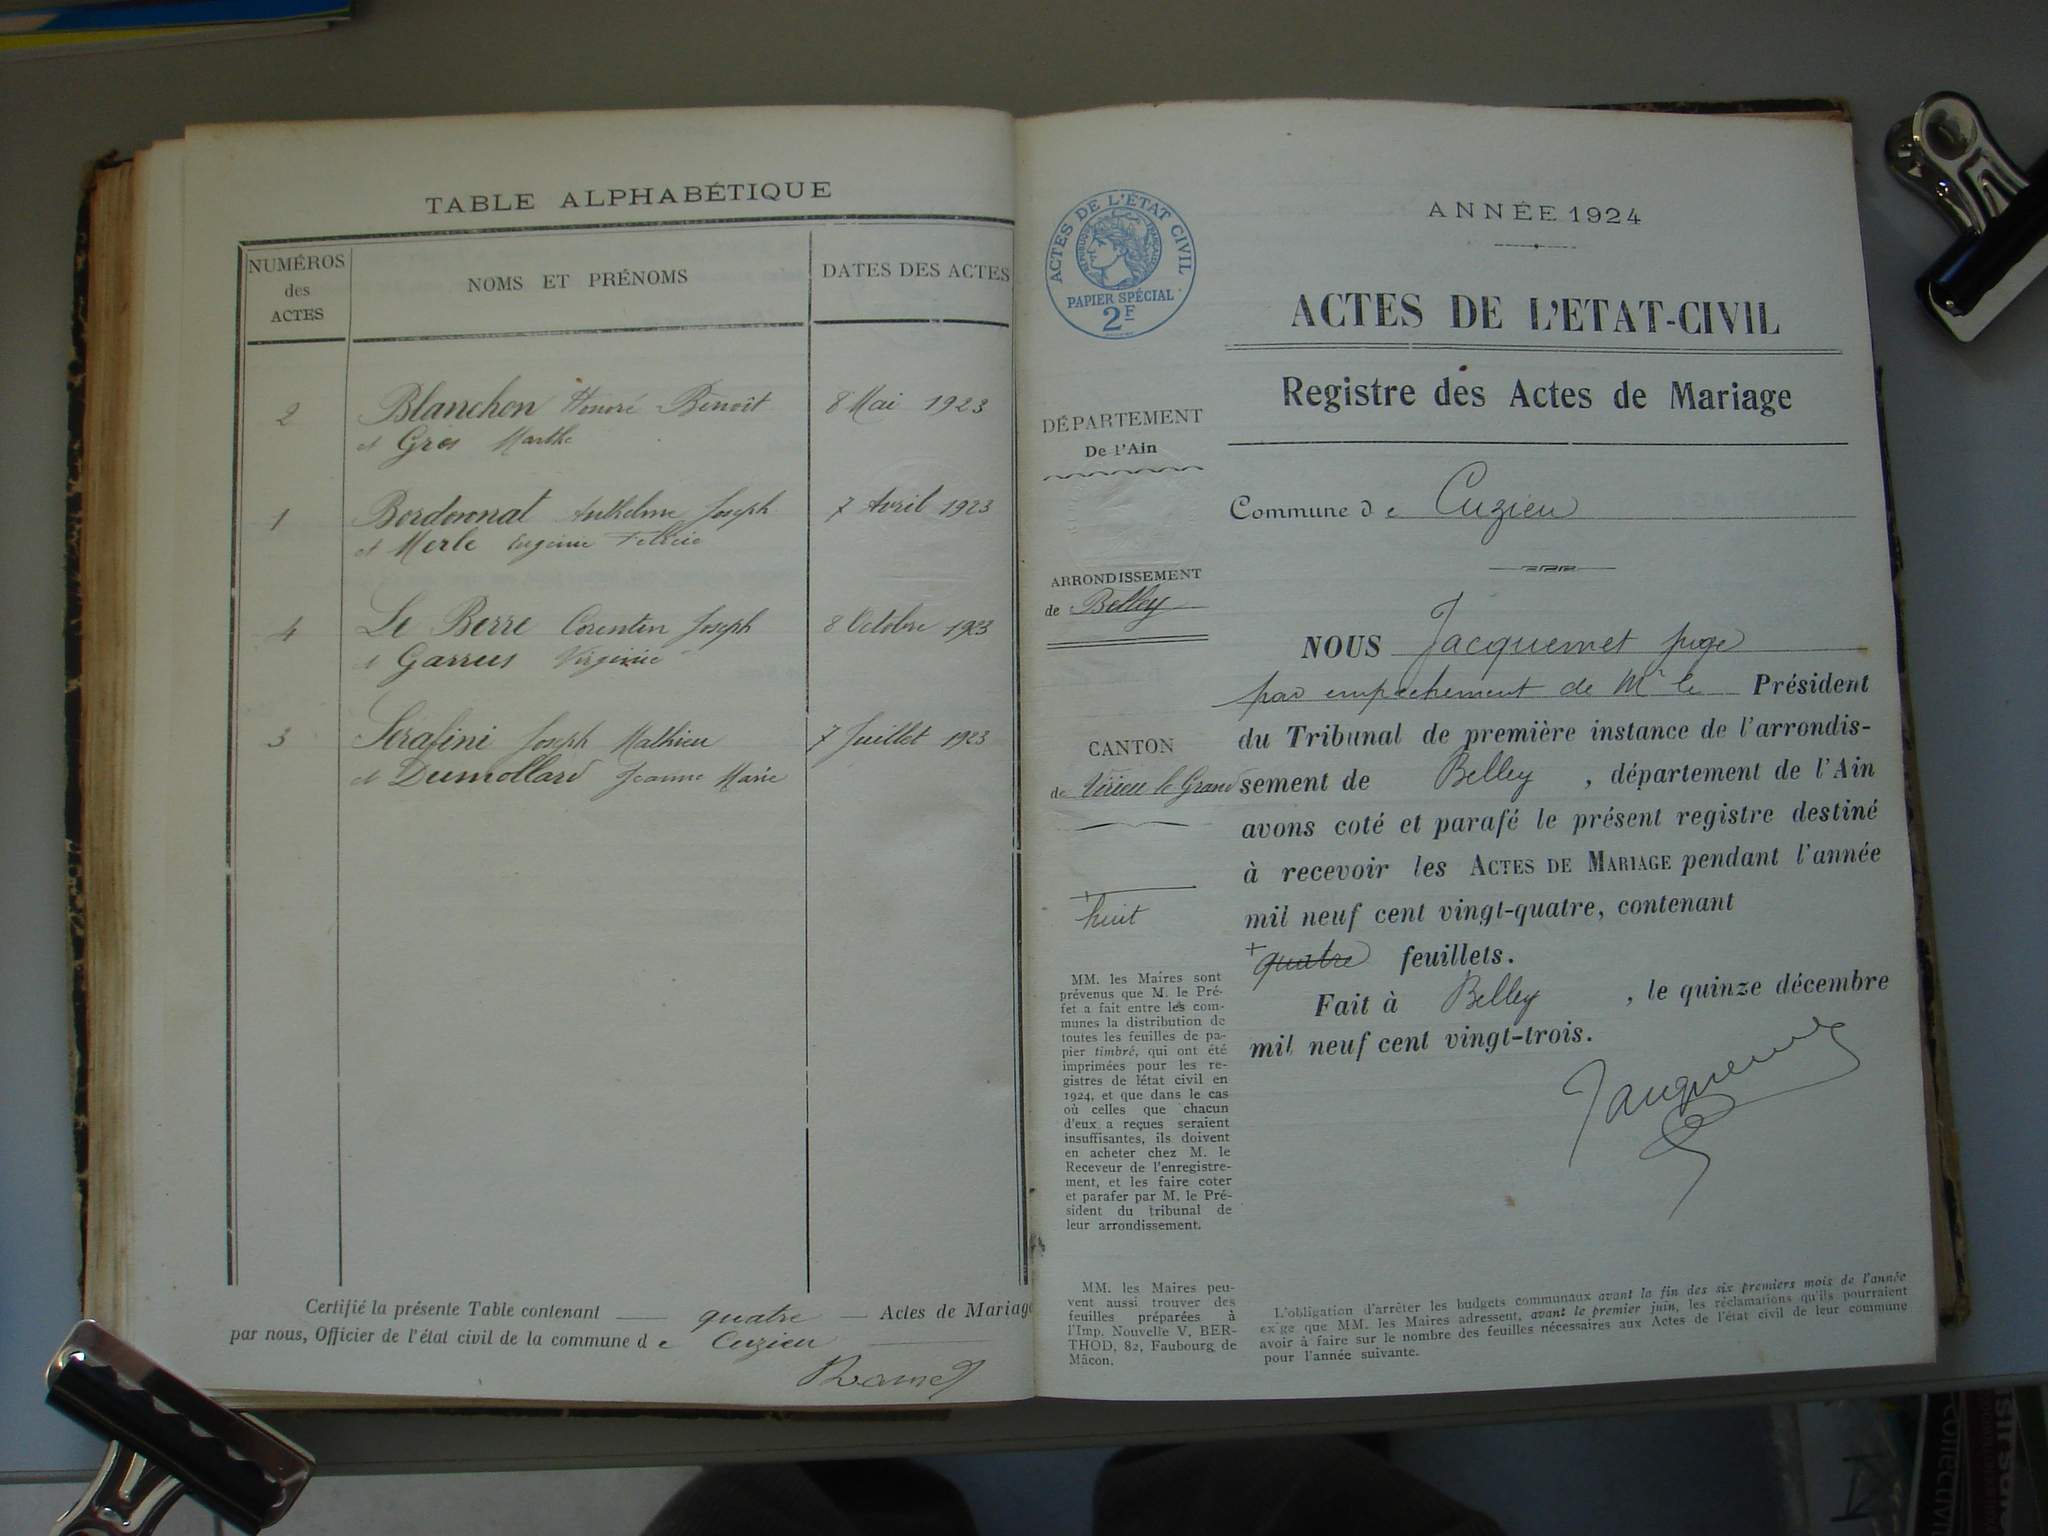 TABLE ALPHABÉTIQUE
NUMÉROS
des
ACTES
NOMS ET PRÉNOMS
DATES DES ACTES
2 Blanchon Honoré Benoît 8 Mai 1923
et Gros Marthe
1 Bordonnat Anthelme Joseph 7 Avril 1923
et Merle Eugénie Félicie
4 Le Berre Corentin Joseph 8 Octobre 1923
et Garrus Virginie
3 Sérafini Joseph Mathieu 7 Juillet 1923
et Dumollard Jeanne Marie
Certifié la présente Table contenant quatre Actes de Mariage
par nous, Officier de l'état civil de la commune de Cuzieu
ACTES DE L'ÉTAT CIVIL
RÉPUBLIQUE FRANÇAISE
PAPIER SPÉCIAL
2F
DÉPARTEMENT
De l'Ain
ARRONDISSEMENT
de Belley
CANTON
de Virieu le Grand
+
huit
MM. les Maires sont
prévenus que M. le Pré-
fet a fait entre les com-
munes la distribution de
toutes les feuilles de pa-
pier timbré, qui ont été
imprimées pour les re-
gistres de l'état civil en
1924, et que dans le cas
où celles que chacun
d'eux a reçues seraient
insuffisantes, ils doivent
en acheter chez M. le
Receveur de l'enregistre-
ment, et les faire coter
et parafer par M. le Pré-
sident du tribunal de
leur arrondissement.
MM. les Maires peu-
vent aussi trouver des
feuilles préparées à
l'Imp. Nouvelle V. BER-
THOD, 82, Faubourg de
Mâcon.
ANNÉE 1924
ACTES DE L'ETAT-CIVIL
Registre des Actes de Mariage
Commune de Cuzieu
NOUS Jacquemet juge
par empechement de Mr le Président
du Tribunal de première instance de l'arrondis-
sement de Belley, département de l'Ain
avons coté et parafé le présent registre destiné
à recevoir les ACTES DE MARIAGE pendant l'année
mil neuf cent vingt-quatre, contenant
+ quatre feuillets.
Fait à Belley, le quinze décembre
mil neuf cent vingt-trois.
Jacquemet
L'obligation d'arrêter les budgets communaux avant la fin des six premiers mois de l'année
exige que MM. les Maires adressent, avant le premier juin, les réclamations qu'ils pourraient
avoir à faire sur le nombre des feuilles nécessaires aux Actes de l'état civil de leur commune
pour l'année suivante.